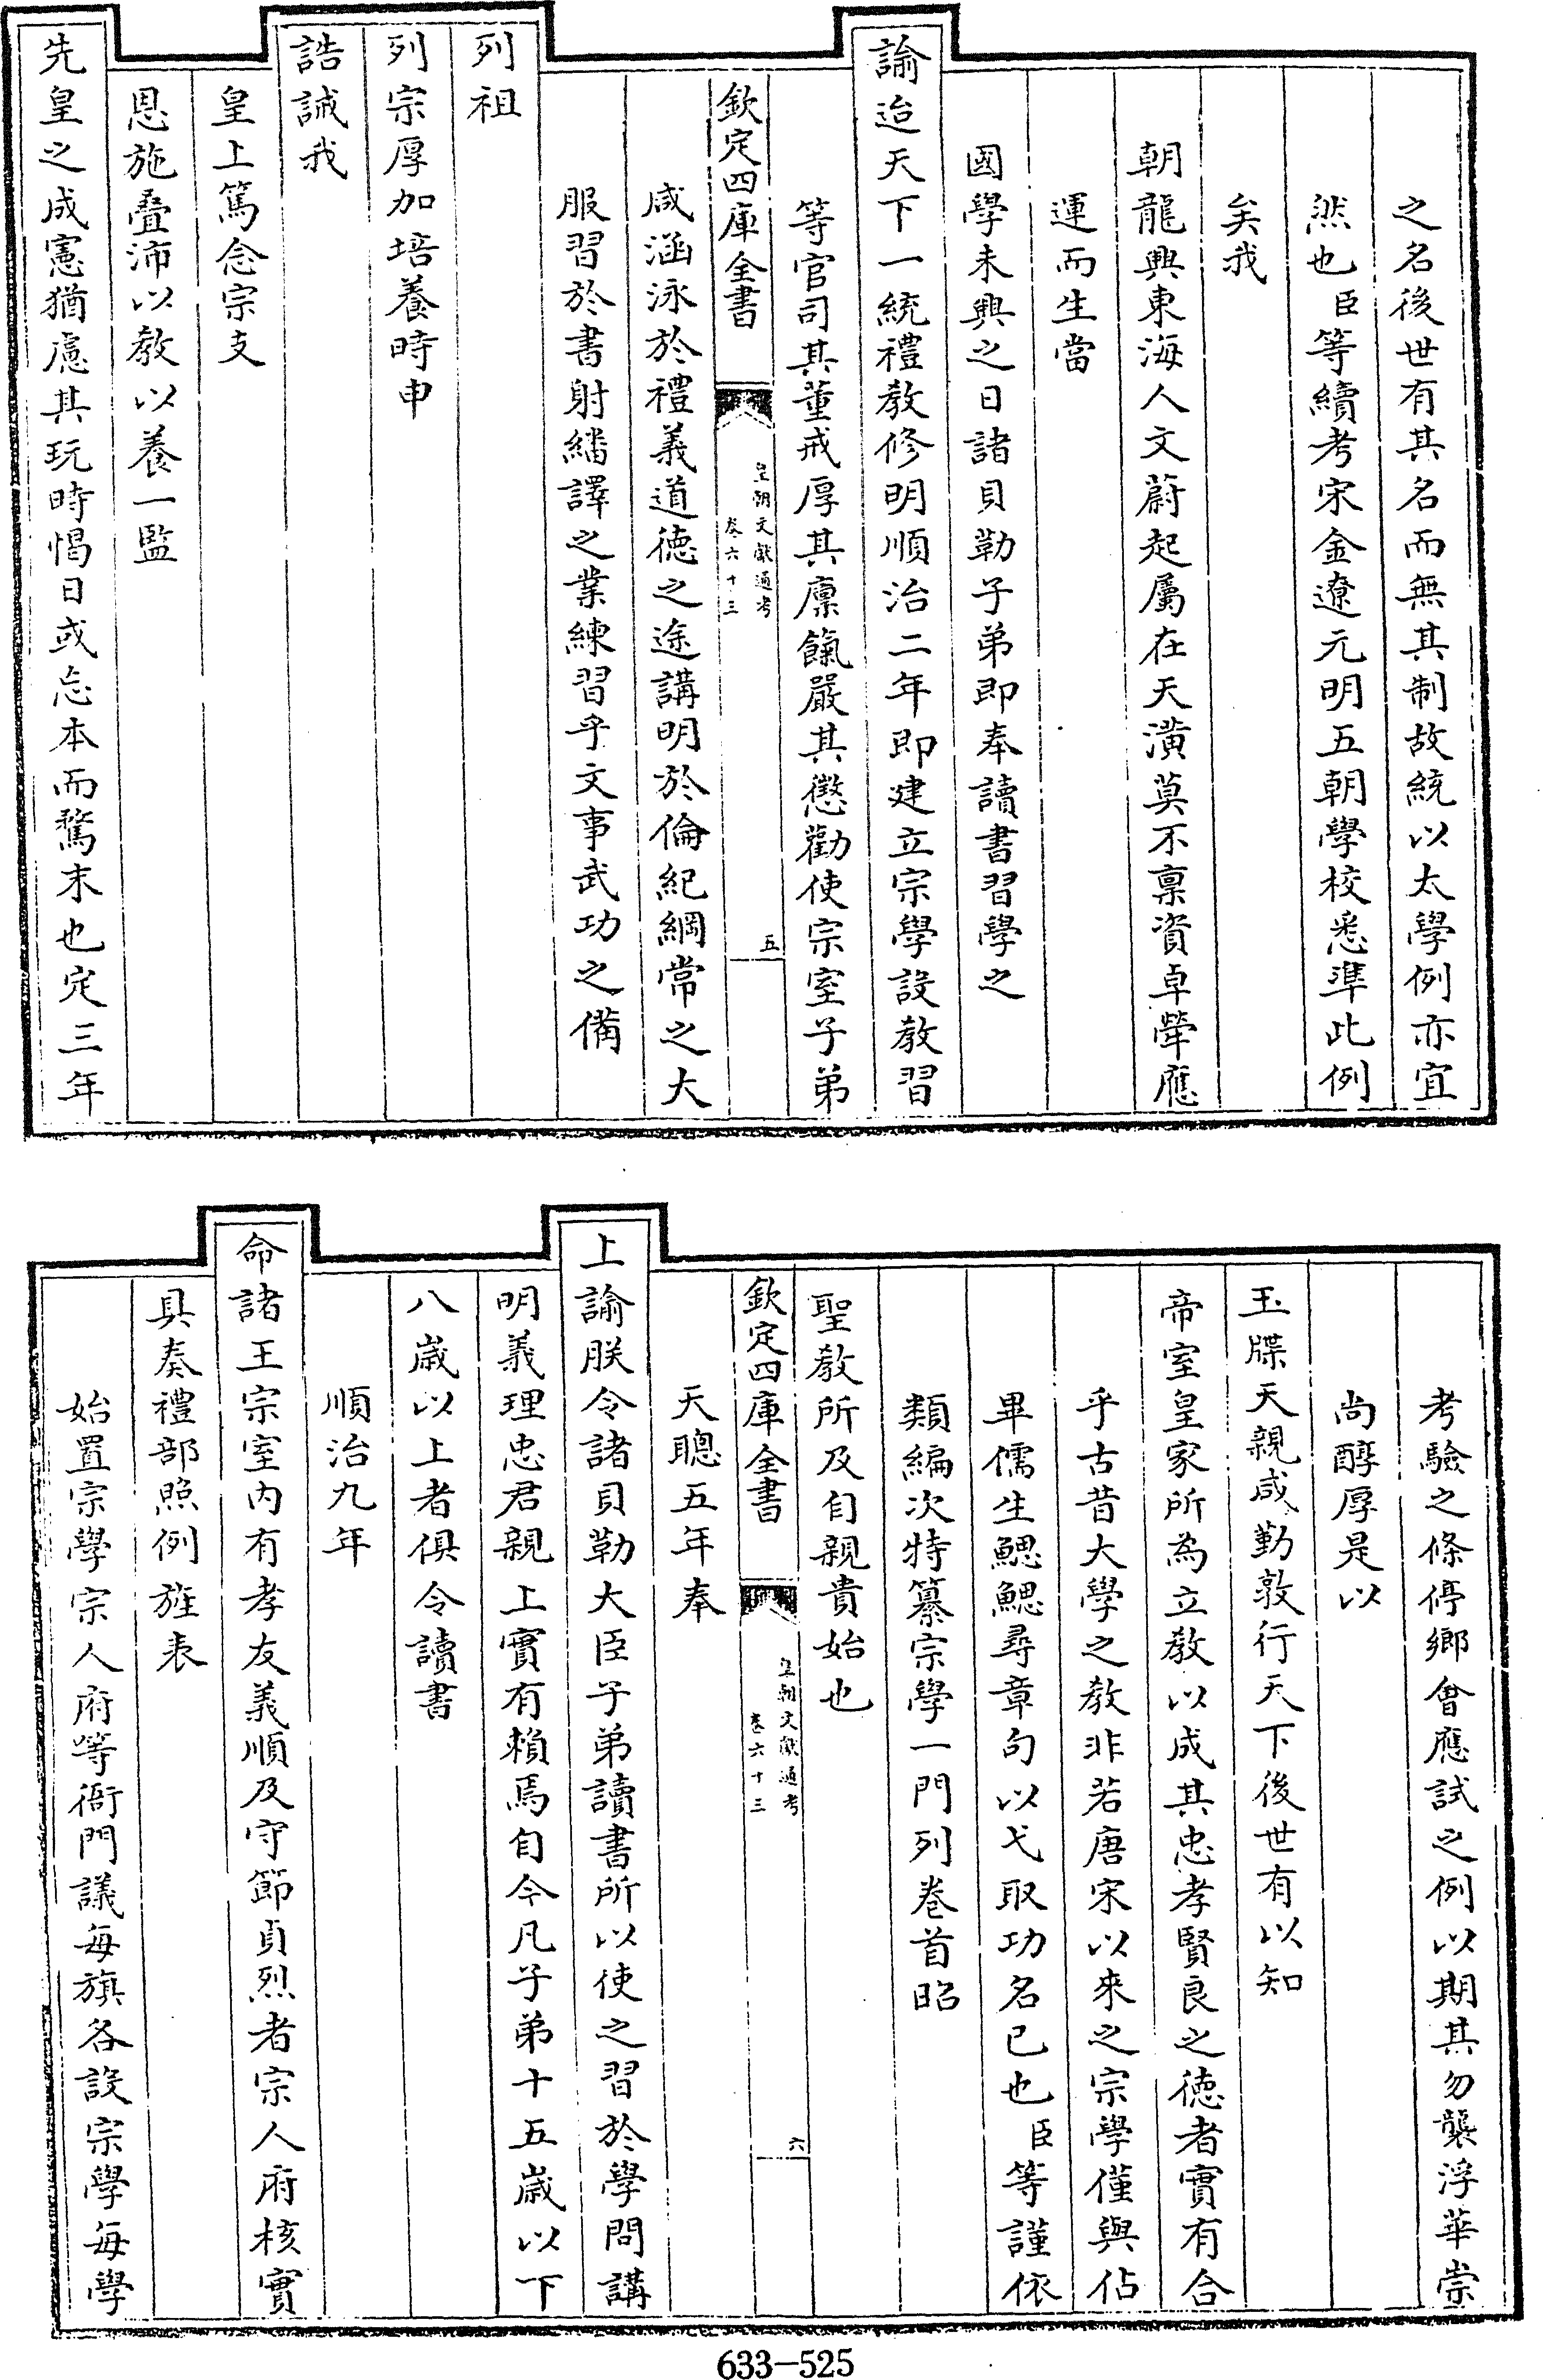 之名後世有其名而無其制故統以太學例亦宜
然也臣等續考宋金遼元明五朝學校悉準此例
矣我
朝龍興東海人文蔚起屬在天潢莫不稟資卓犖應
運而生當
國學未興之日諸貝勒子弟即奉讀書習學之
諭迨天下一統禮教修明順治二年即建立宗學設教習
等官司其董戒厚其廩餼嚴其懲勸使宗室子弟
欽定四庫全書
皇朝文獻通考
卷六十三
五
咸涵泳於禮義道徳之途講明於倫紀綱常之大
服習於書射繙譯之業練習乎文事武功之備
列祖
列宗厚加培養時申
誥誡我
皇上篤念宗支
恩施疊沛以教以養一監
先皇之成憲猶慮其玩時愒日或忘本而騖末也定三年
考驗之條停鄉會應試之例以期其勿襲浮華崇
尚醇厚是以
玉牒天親咸勤敦行天下後世有以知
帝室皇家所為立教以成其忠孝賢良之徳者實有合
乎古昔大學之教非若唐宋以來之宗學僅與佔
畢儒生鰓鰓尋章句以弋取功名已也臣等謹依
類編次特纂宗學一門列卷首昭
聖教所及自親貴始也
欽定四庫全書
皇朝文獻通考
卷六十三
六
天聰五年奉
上諭朕令諸貝勒大臣子弟讀書所以使之習於學問講
明義理忠君親上實有賴焉自今凡子弟十五歲以下
八歲以上者俱令讀書
順治九年
命諸王宗室內有孝友義順及守節貞烈者宗人府核實
具奏禮部照例旌表
始置宗學宗人府等衙門議每旗各設宗學每學
633-525